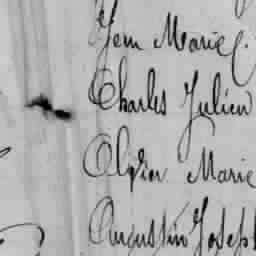 Jean Marie C.
Charles Julien
Olivier Marie
Augustin Joseph